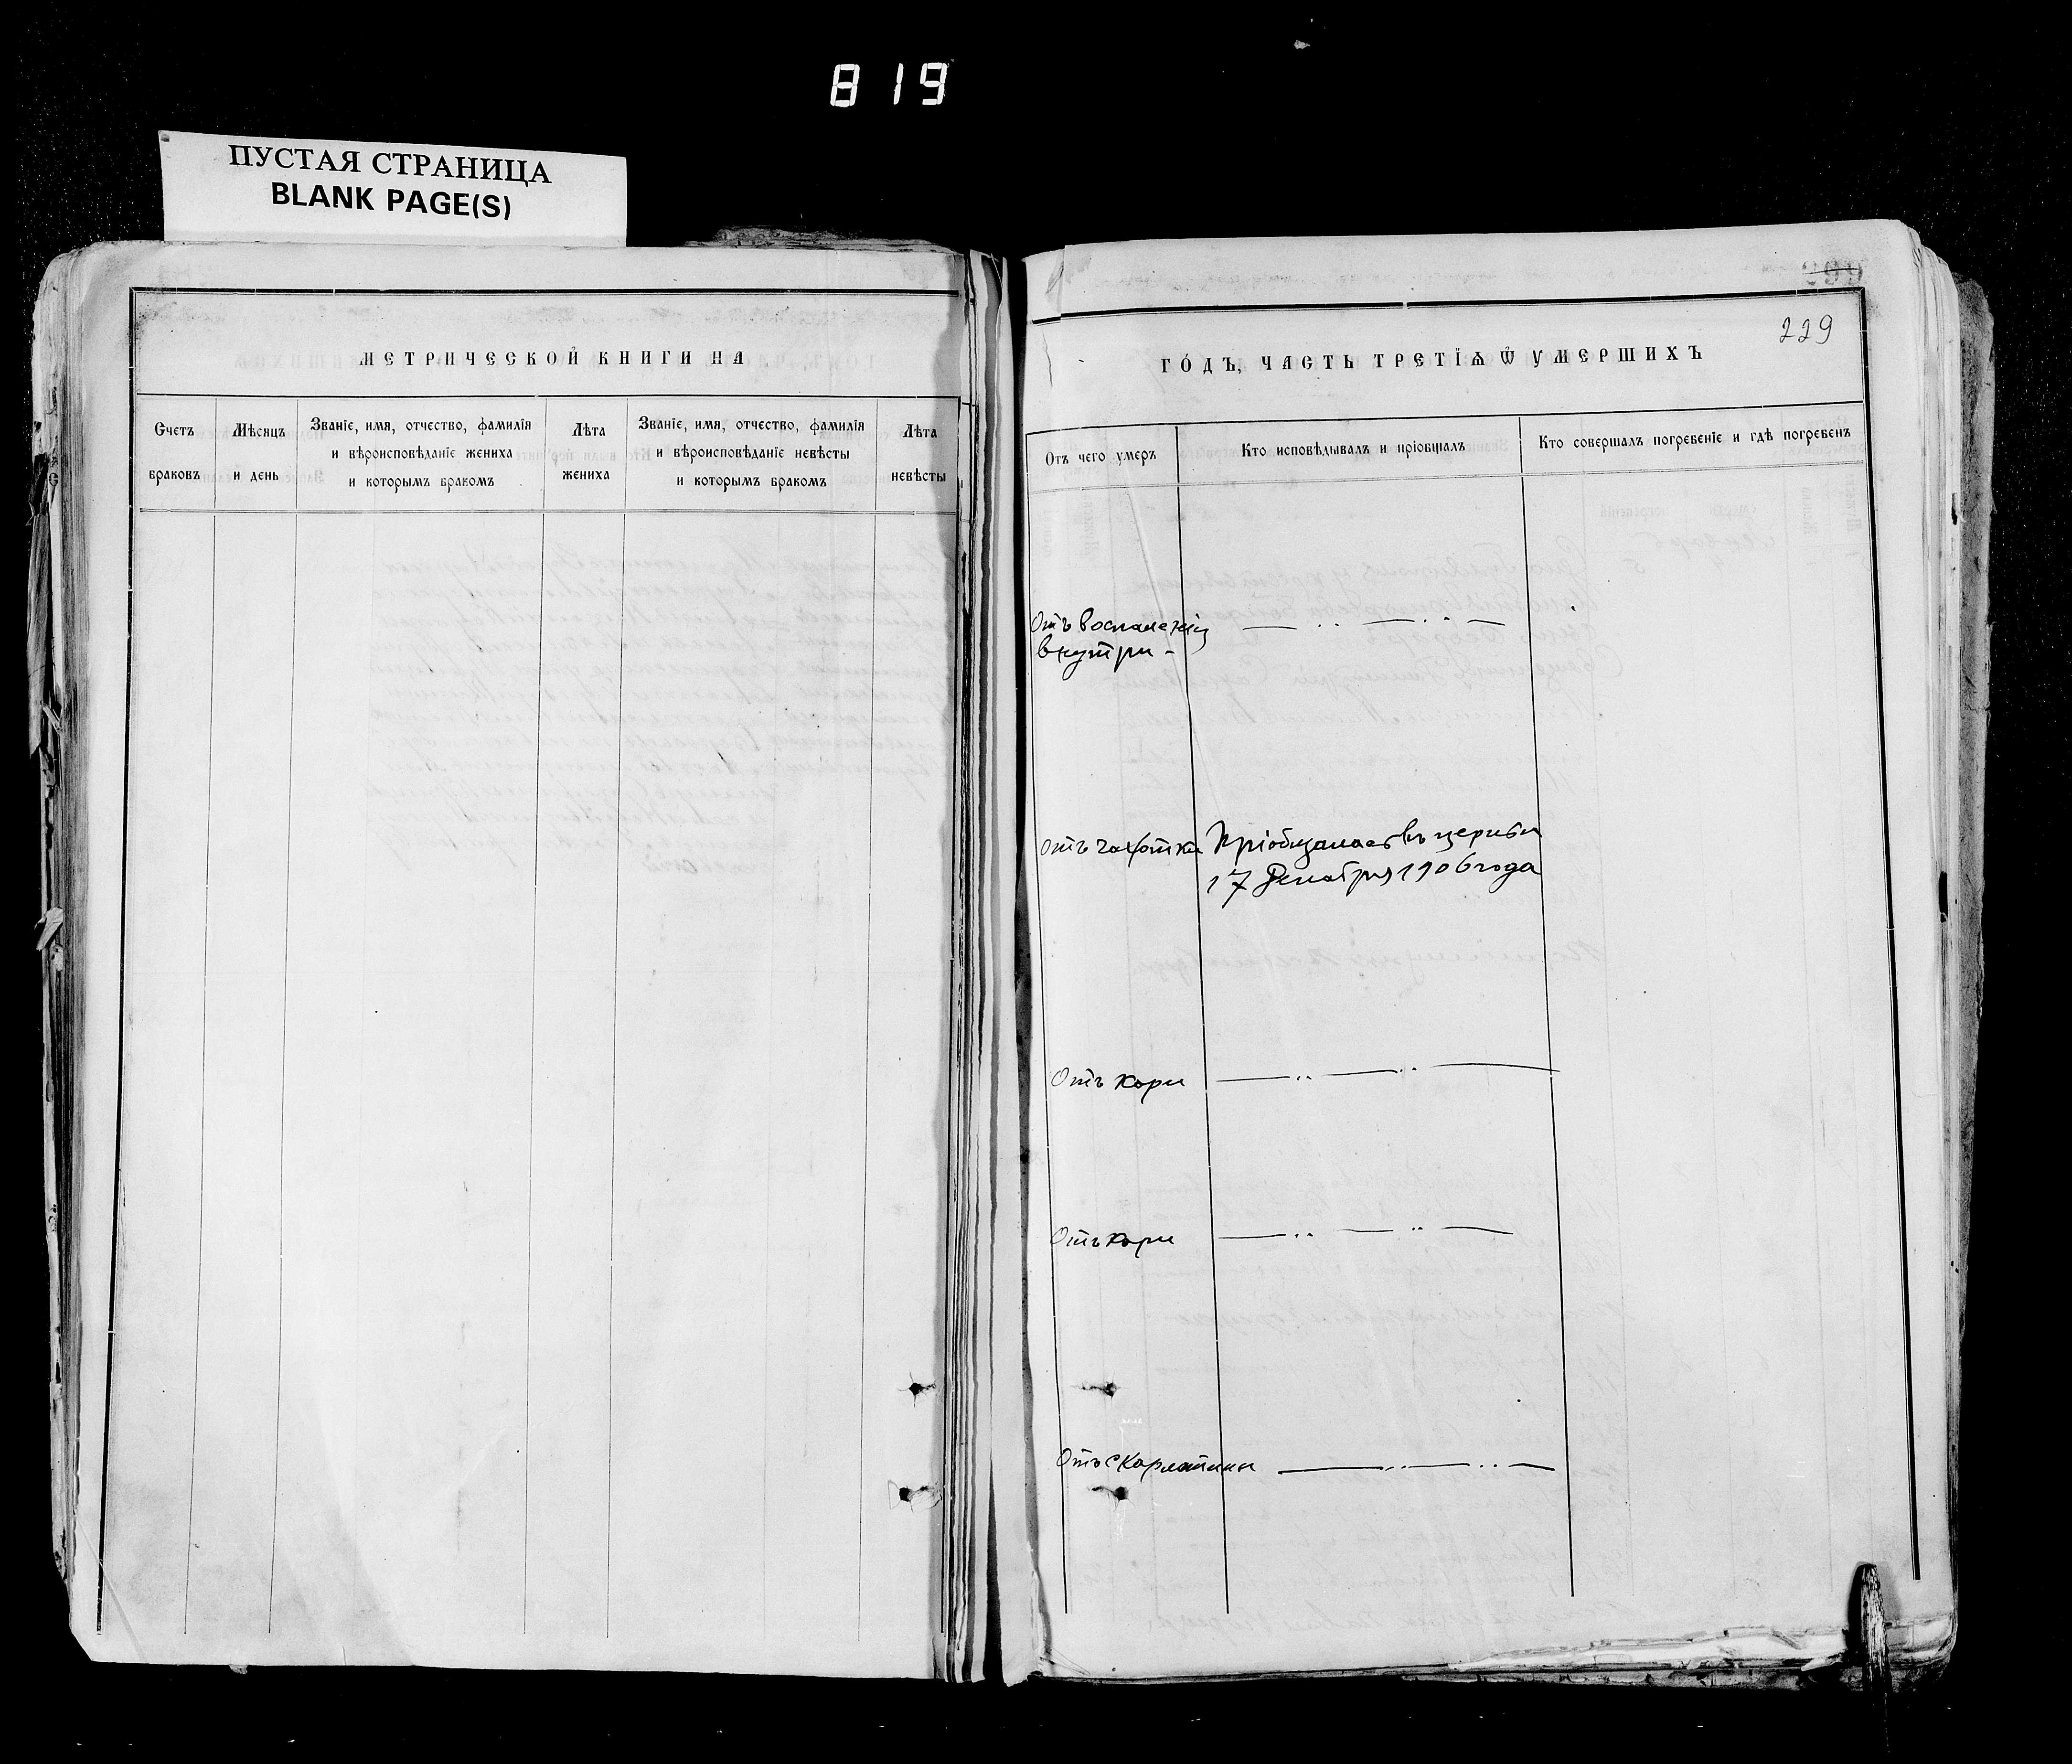 819
ПУСТАЯ СТРАНИЦА
BLANK PAGE(S)
МЕТРИЧЕСКОЙ КНИГИ НА
Счетъ
браковъ
Мѣсяцъ
и день
Званіе, имя, отчество, фамилія
и вѣроисповѣданіе жениха
и которымъ бракомъ
Лѣта
жениха
Званіе, имя, отчество, фамилія
и вѣроисповѣданіе невѣсты
и которымъ бракомъ
Лѣта
невѣсты
229
ГО́ДЪ, ЧАСТЬ ТРЕТІѦ Ѿ УМЕРШИХЪ
Отъ чего умеръ
Кто исповѣдывалъ и пріобщалъ
Кто совершалъ погребеніе и гдѣ погребенъ
Отъ воспаленія
внутри -
Отъ чахотки
Пріобщалась въ церкви
17 Декабря 1906 года
Отъ кори
Отъ кори
Отъ скарлатины